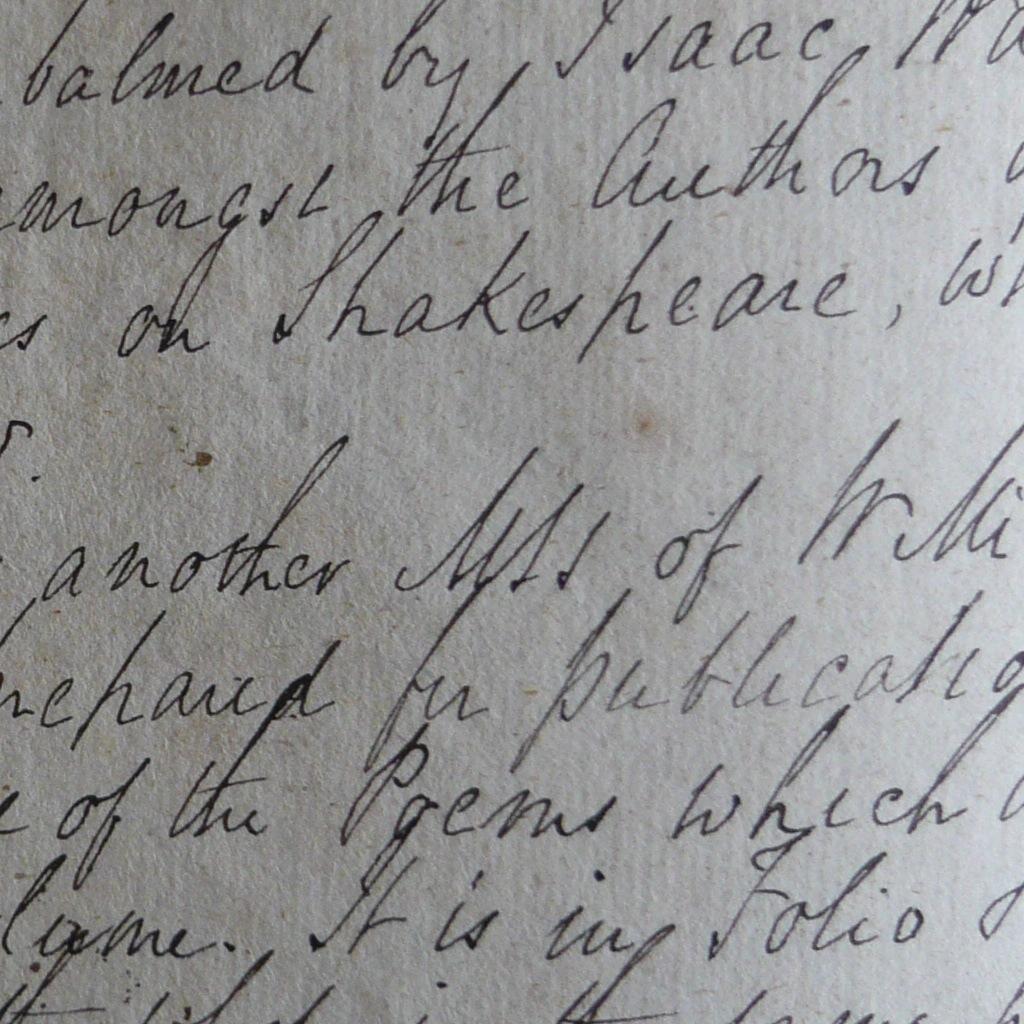 balmed by Isaac Wa
amongst the Authors
es on Shakespeare, wh
another MSS of Willi
prepared for publicatio
of the Poems which
lume. It is in Folio